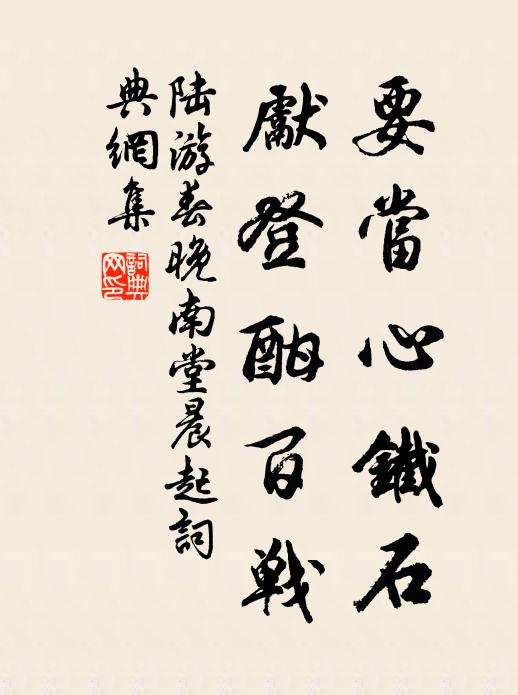 要當心鐵石
獻登酣百戰
陸游春晚南堂晨起詞
典網集
詞典
网印